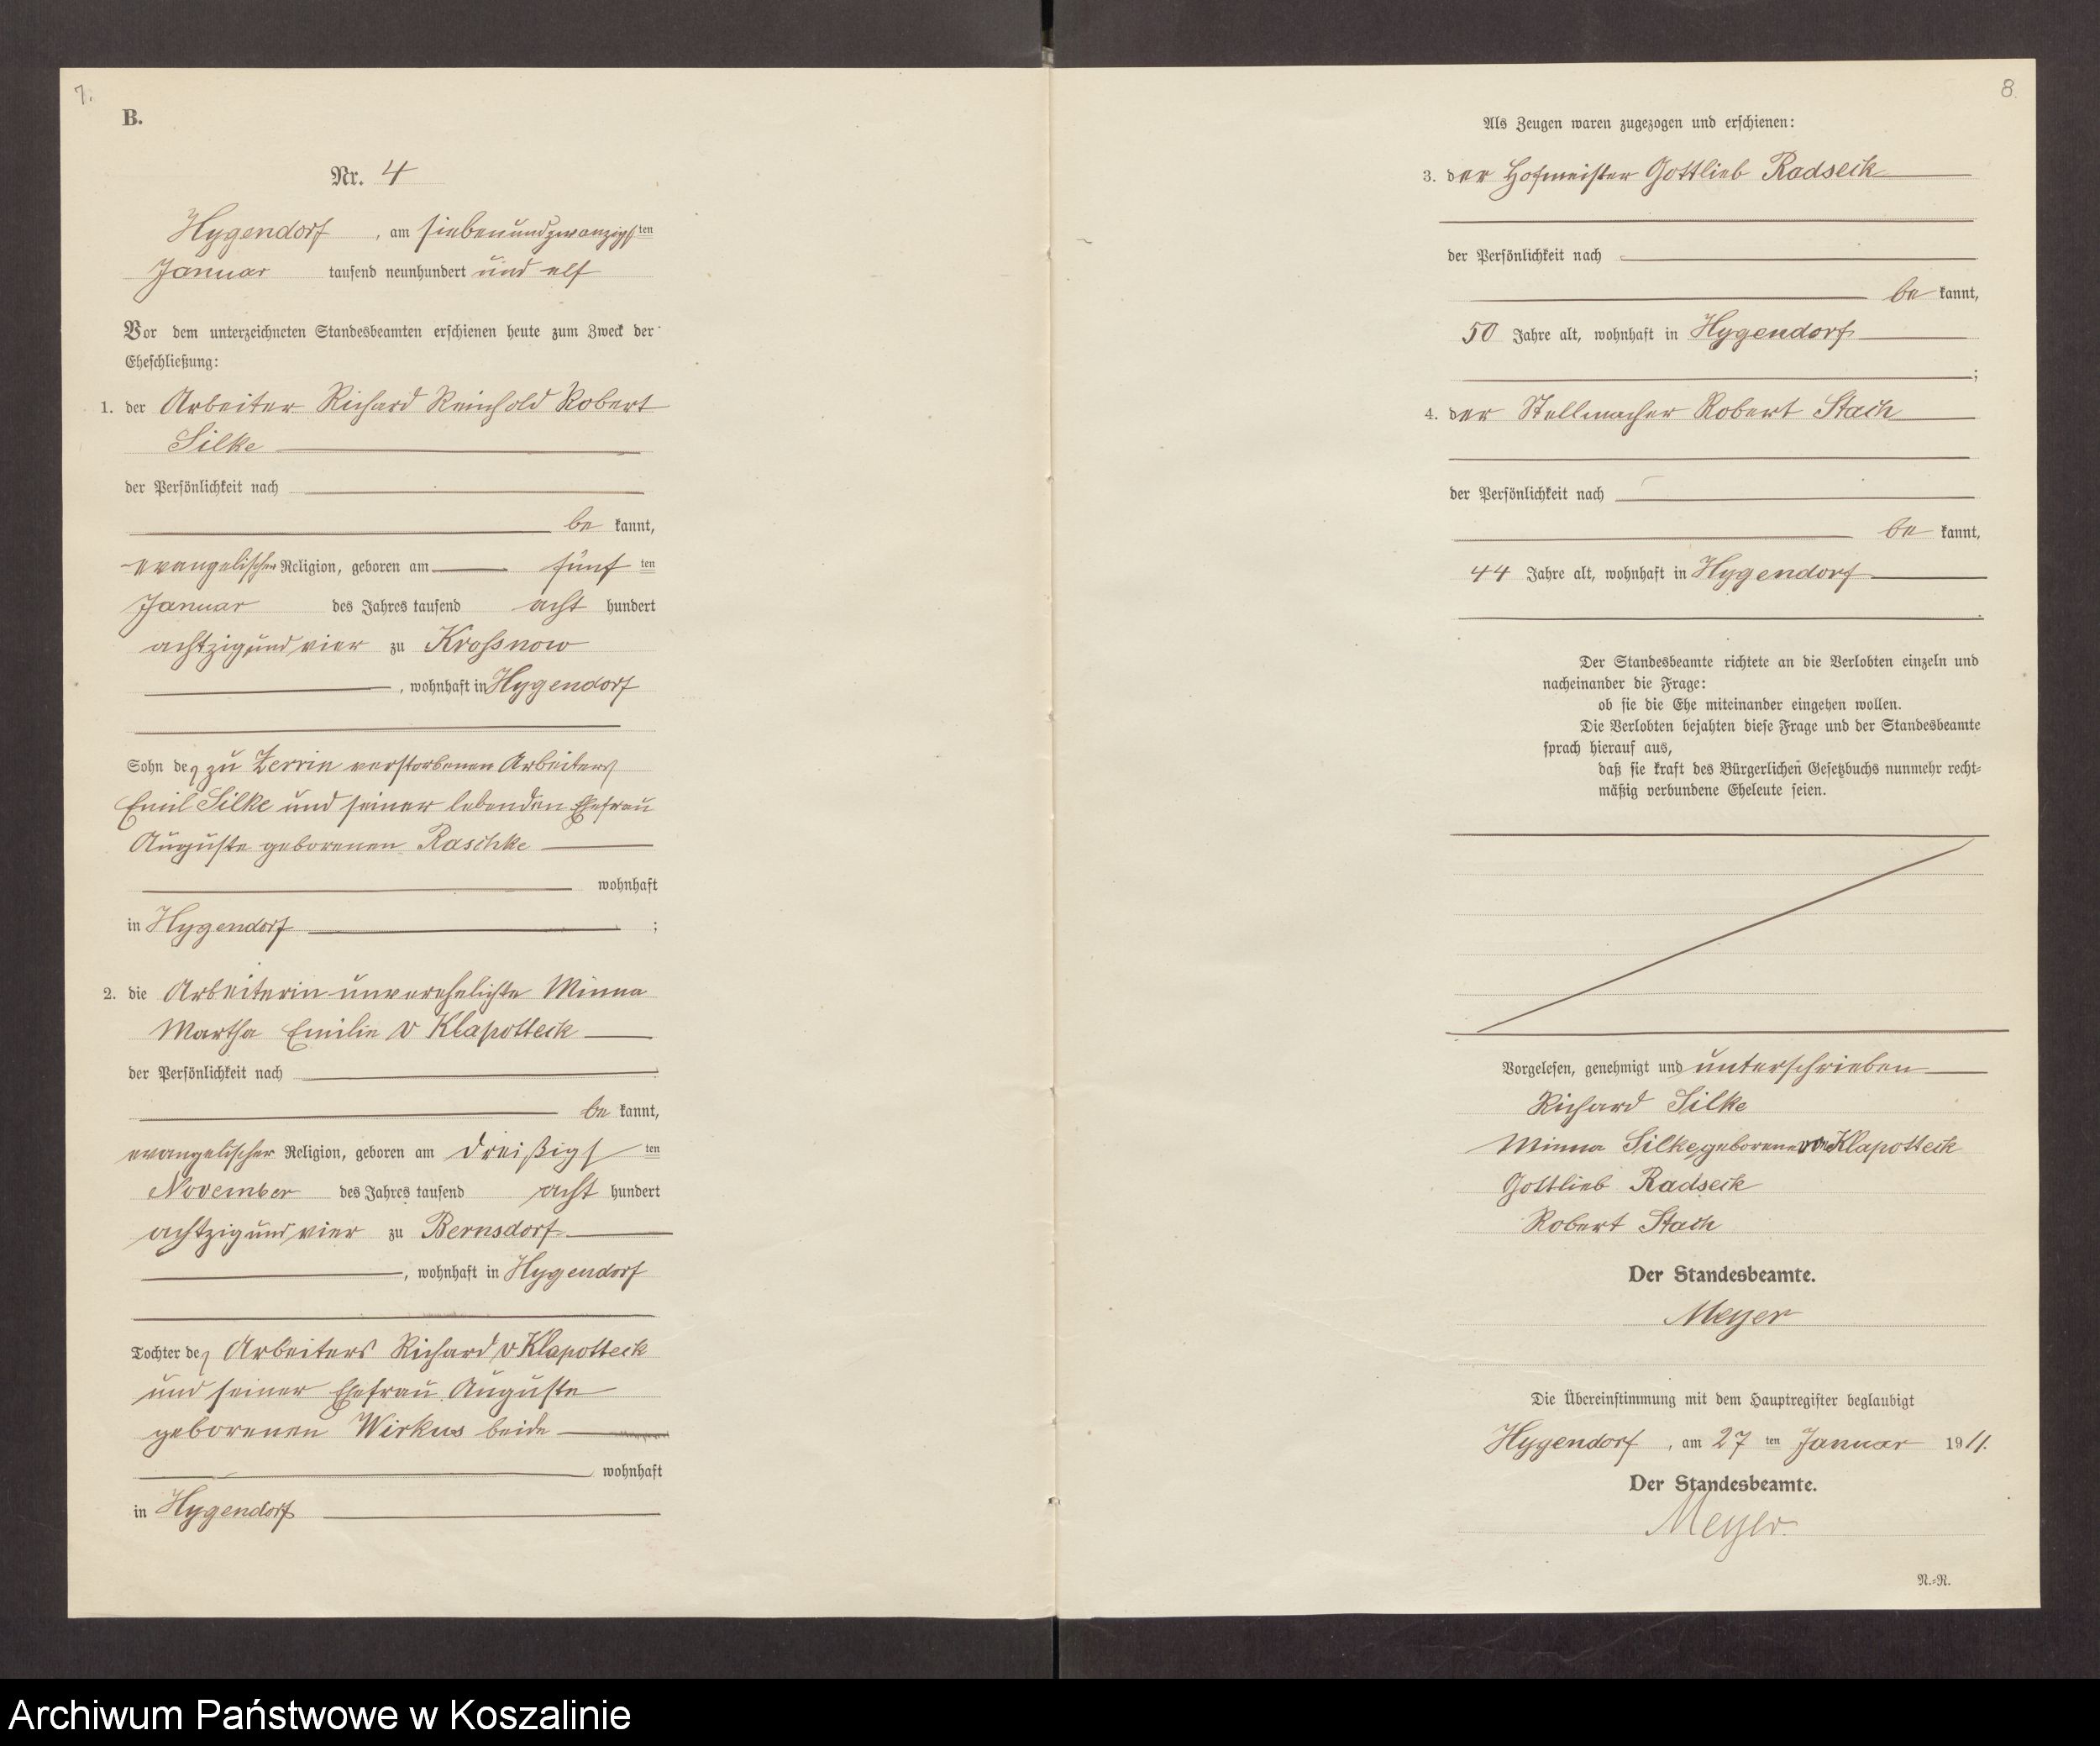 7.
B.
Nr. 4
Hygendorf, am siebenundzwanzigsten
Januar tausend neunhundert und elf
Vor dem unterzeichneten Standesbeamten erschienen heute zum Zweck der
Eheschließung:
1. der Arbeiter Richard Reinhold Robert
Silke
der Persönlichkeit nach
be kannt,
evangelischer Religion, geboren am fünf ten
Januar des Jahres tausend acht hundert
achtzig und vier zu Kroßnow
, wohnhaft in Hygendorf
Sohn des zu Zerrin verstorbenen Arbeiters
Emil Silke und seiner lebenden Ehefrau
Auguste geborenen Raschke
wohnhaft
in Hygendorf ;
2. die Arbeiterin unverehelichte Minna
Martha Emilie v Klapotteck
der Persönlichkeit nach
be kannt,
evangelischer Religion, geboren am dreißigs ten
November des Jahres tausend acht hundert
achtzig und vier zu Bernsdorf
, wohnhaft in Hygendorf
Tochter des Arbeiters Richard v Klapotteck
und seiner Ehefrau Auguste
geborenen Wirkus beide
wohnhaft
in Hygendorf
8.
Als Zeugen waren zugezogen und erschienen:
3. der Hofmeister Gottlieb Radseck
der Persönlichkeit nach
be kannt,
50 Jahre alt, wohnhaft in Hygendorf
;
4. der Stellmacher Robert Stach
der Persönlichkeit nach
be kannt,
44 Jahre alt, wohnhaft in Hygendorf
.
Der Standesbeamte richtete an die Verlobten einzeln und
nacheinander die Frage:
ob sie die Ehe miteinander eingehen wollen.
Die Verlobten bejahten diese Frage und der Standesbeamte
sprach hierauf aus,
daß sie kraft des Bürgerlichen Gesetzbuchs nunmehr recht-
mäßig verbundene Eheleute seien.
Vorgelesen, genehmigt und unterschrieben
Richard Silke
Minna Silke, geborene von Klapotteck
Gottlieb Radseck
Robert Stach
Der Standesbeamte.
Meyer
Die Übereinstimmung mit dem Hauptregister beglaubigt
Hygendorf, am 27 ten Januar 1911.
Der Standesbeamte.
Meyer.
N.-R.
Archiwum Państwowe w Koszalinie